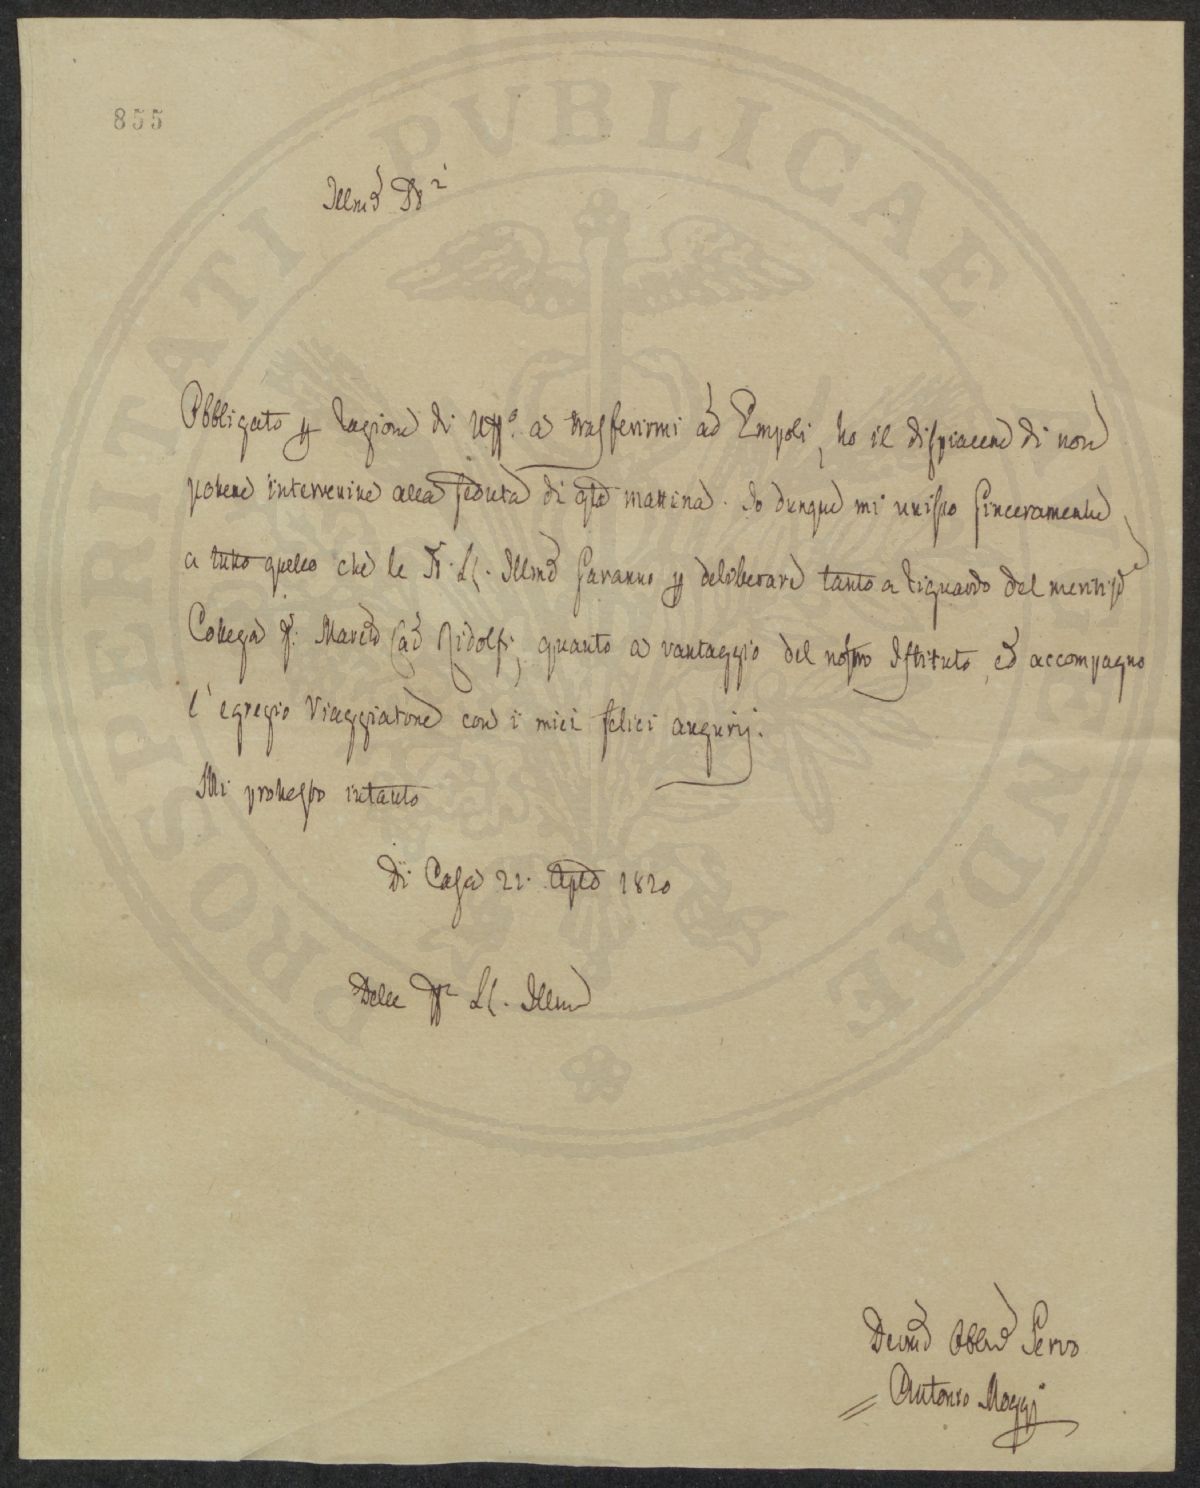 855
Illmi SSri
Obbligato p ragione di Uffo. a trasferirmi ad Empoli, ho il dispiacere di non
potere intervenire alla seduta di qta mattina. Io dunque mi unisco sinceramente
a tutto quello che le SS. LL. Illme saranno p deliberare tanto a riguardo del meritissmo
Collega Sr. March Cav Ridolfi, quanto a vantaggio del nostro Istituto, ed accompagno
l'egregio Viaggiatore con i miei felici augurij.
Mi protesto intanto
Di Casa 22. 1820
Delle SS LL. Illme
Devmo Obblmo Servo
Antonio
PROSPERITATI PUBLICAE AUGENDAE